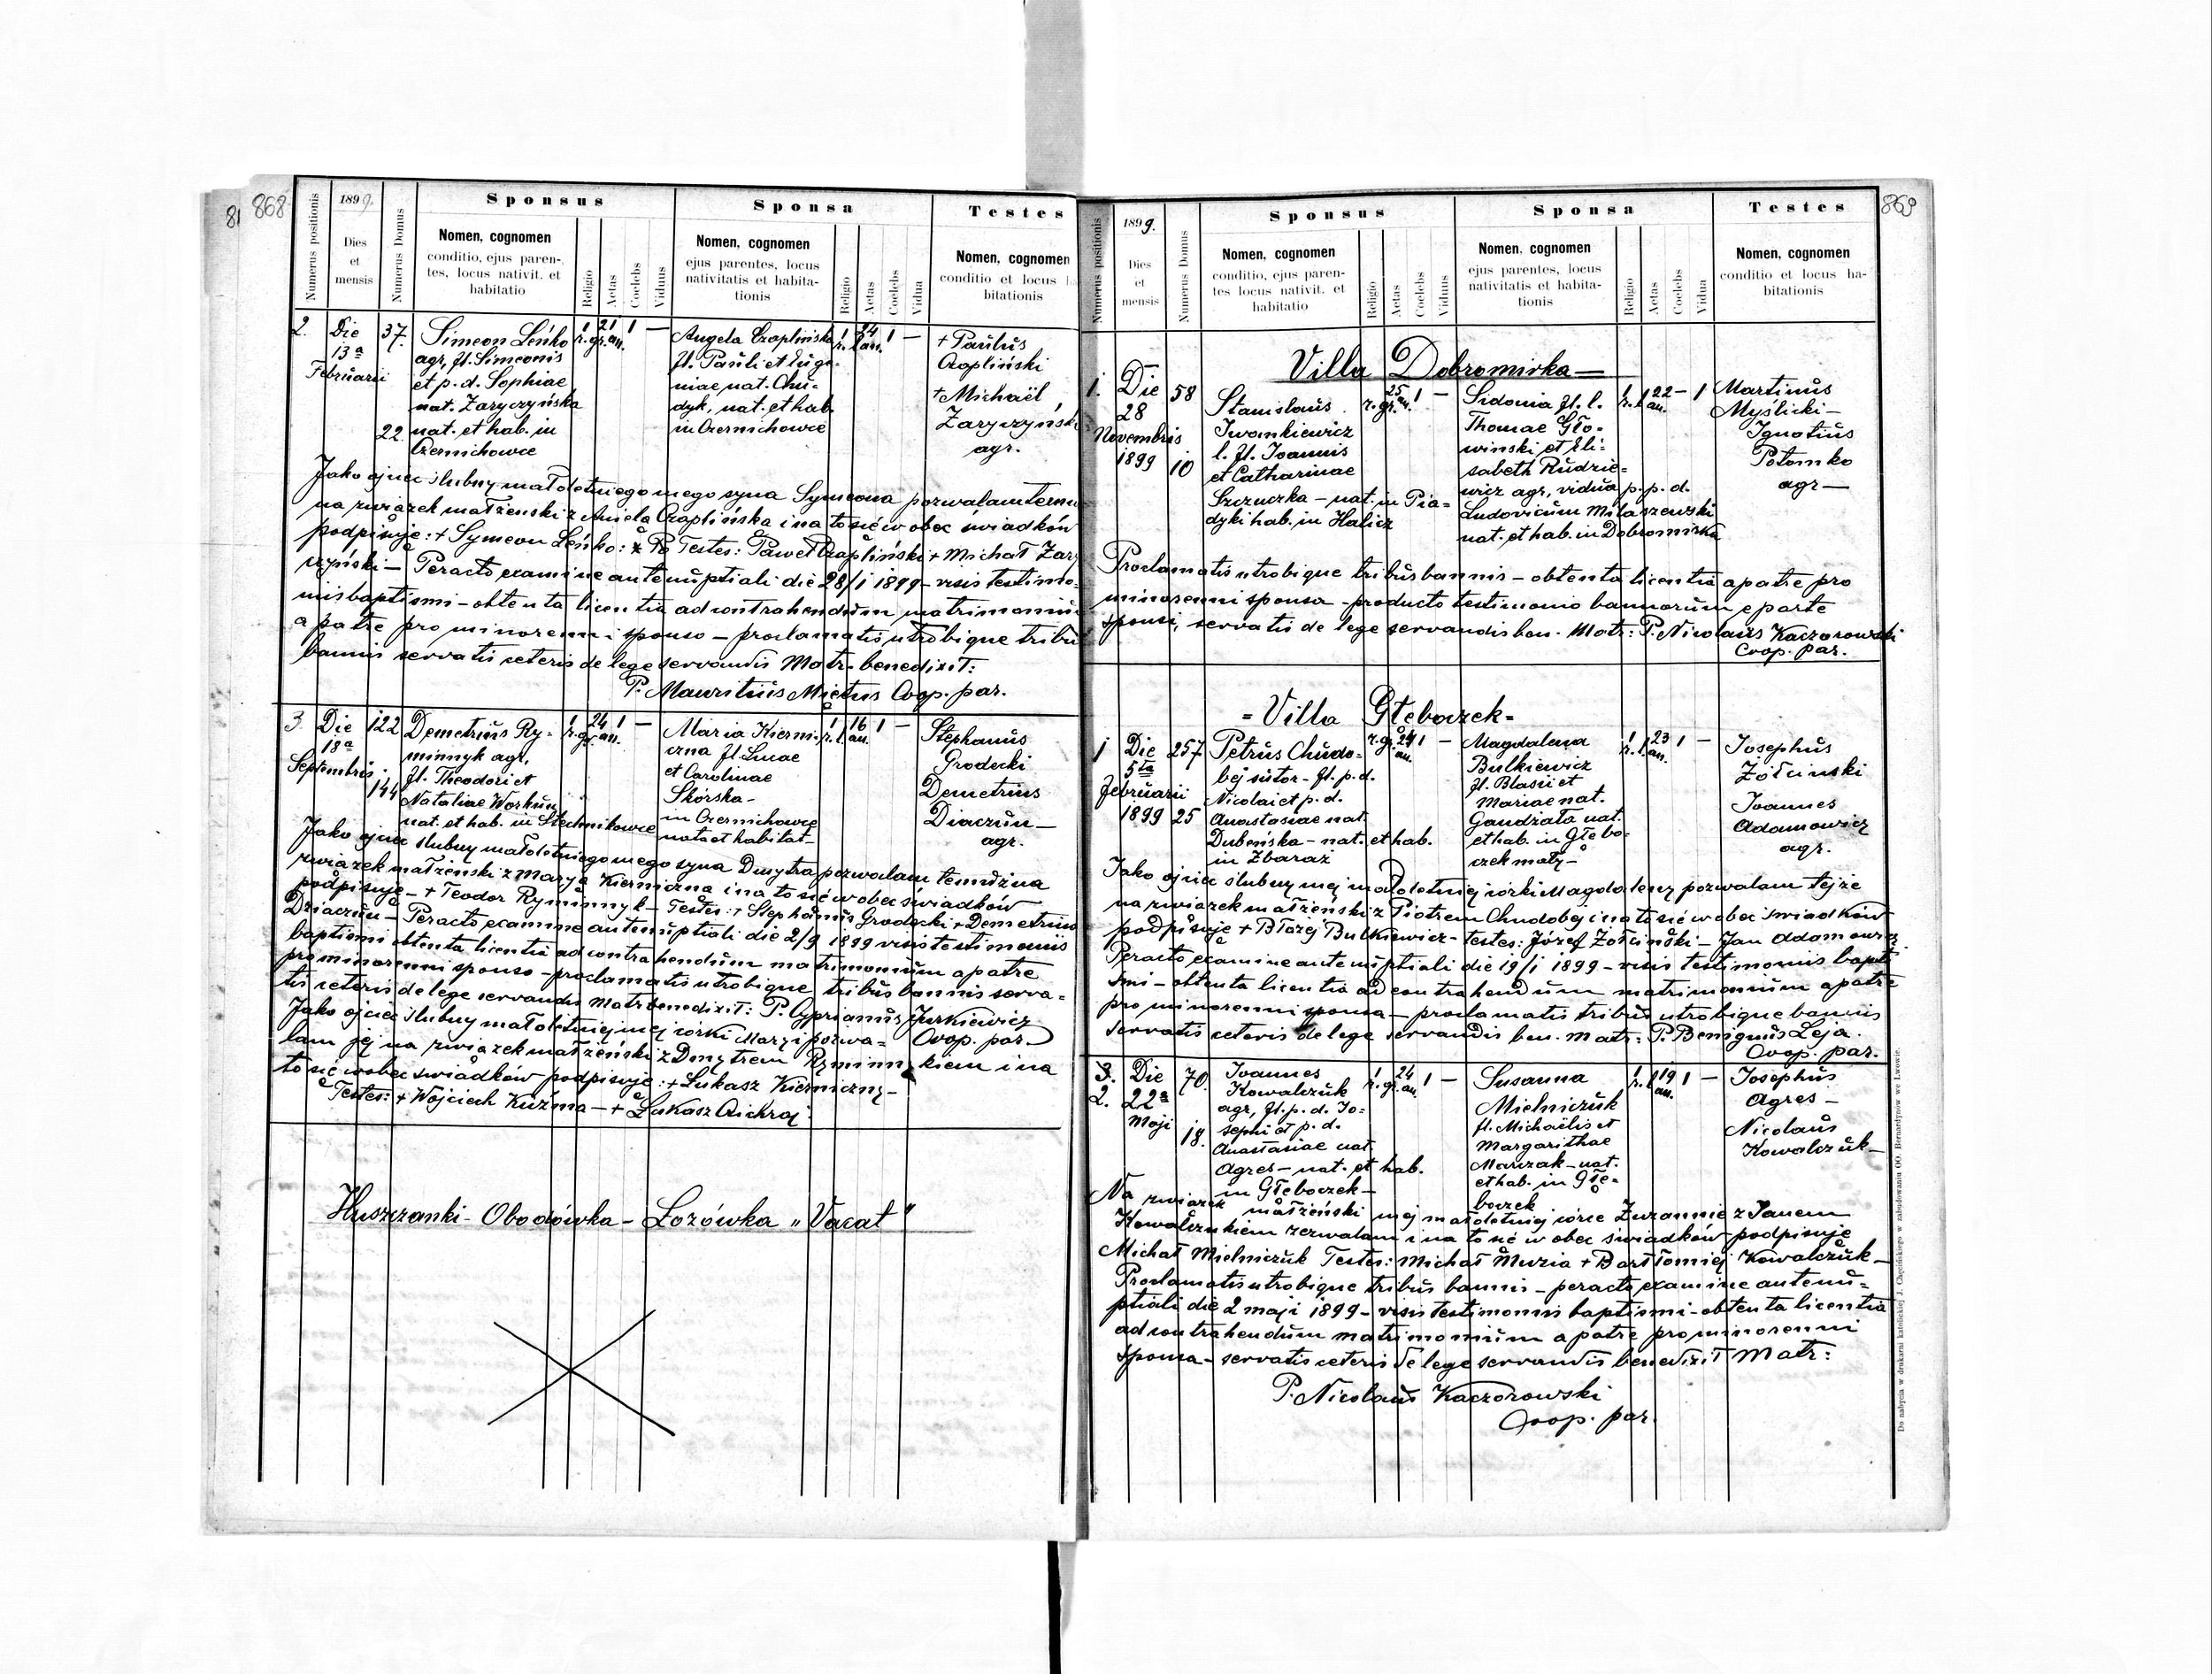 81 868
1899.
Numerus positionis
Dies
et
mensis
Numerus Domus
Sponsus
Nomen, cognomen
conditio, ejus paren-
tes, locus nativit. et
habitatio
Religio
Aetas
Coelebs
Viduus
Sponsa
Nomen, cognomen
ejus parentes, locus
nativitatis et habita-
tionis
Religio
Aetas
Coelebs
Vidua
Testes
Nomen, cognomen
conditio et locus ha
bitationis
2. Die
13ª
Februarii
37.
22
Simeon Leńko
agr, fl. Simeonis
et p. d. Sophiae
nat. Zaryczyńska
nat. et hab. in
Czernichowce
r. gr. 21 an. 1 —
Angela Czaplińska
fl. Pauli et Euge-
niae nat. Chu-
dyk, nat. et hab.
in Czernichowce
r. l. 24 an. 1 —
+ Paulus
Czapliński
+ Michaël
Zaryczyńsk
agr.
Jako ojciec ślubny małoletniego mego syna Symeona pozwalam temu
na związek małżenski z Anielą Czaplińska i na to się w obec świadków
podpisuję: + Symeon Leńko: Testes: Paweł Czapliński + Michał Zary
czyński — Peracto examine antenuptiali die 28/1 1899 — visis testimo-
niis baptismi — obtenta licentia ad contrahendum matrimonium
a patre pro minorenni sponso — proclamatis utrobique tribus
bannis servatis ceteris de lege servandis Matr. benedixit:
P. Mauritius Miętus Coop. par.
3. Die
18ª
Septembris
122
144
Demetrius Ry-
minnyk agr,
fl. Theodori et
Nataliae Workun
nat. et hab. in Stechnikowce
r. gr. 24 an. 1 —
Maria Kierni-
czna fl. Lucae
et Carolinae
Skórska —
in Czernichowce
nata et habitat —
r. l. 16 an. 1 —
Stephanus
Grodecki
Demetrius
Diaczun —
agr.
Jako ojciec ślubny małoletniego mego syna Dmytra pozwalam temuż na
związek małżenski z Maryą Kierniczna i na to się w obec świadków
podpisuję — + Teodor Ryminnyk — Testes: + Stephanus Grodecki + Demetrius
Dziaczun — Peracto examine antenuptiali die 2/9 1899 visis testimoniis
baptismi obtenta licentia ad contrahendum matrimonium a patre
pro minorenni sponso — proclamatis utrobique tribus bannis serva-
tis ceteris de lege servandis Matr benedixit: P. Cyprianus Jurkiewicz
Coop. par.
Jako ojciec ślubny małoletniej mej córki Maryi pozwa-
lam jej na związek małżeński z Dmytrem Ryminnykiem i na
to się wobec świadków podpisuję: + Łukasz Kierniczny —
Testes: + Wojciech Kuźma — + Łukasz
Huszczanki — Obodówka — Łozówka „Vacat"
869
1899.
Numerus positionis
Dies
et
mensis
Numerus Domus
Sponsus
Nomen, cognomen
conditio, ejus paren-
tes locus nativit. et
habitatio
Religio
Aetas
Coelebs
Viduus
Sponsa
Nomen, cognomen
ejus parentes, locus
nativitatis et habita-
tionis
Religio
Aetas
Coelebs
Vidua
Testes
Nomen, cognomen
conditio et locus ha-
bitationis
Villa Dobromirka —
1. Die
28
Novembris
1899
58
10
Stanislaus
Iwankiewicz
l. fl. Joannis
et Catharinae
Szczuczka — nat. in Pia-
dyki hab. in Halicz
r. gr. 25 an. 1 —
Sidonia fl. l.
Thomae Gło-
winski et Eli-
sabeth Rudzie-
wicz agr, vidua p. p. d.
Ludovicum Milaszewski
nat. et hab. in Dobromirka
r. l. 22 an. — 1
Martinus
Myślicki —
Ignatius
Potomko
agr —
Proclamatis utrobique tribus bannis — obtenta licentia a patre pro
minorenni sponsa — producto testimonio bannorum e parte
sponsi, servatis de lege servandis ben. Matr: P. Nicolaus Kaczorowski
Coop. par.
= Villa Głeboczek =
1 Die
5ta
Februarii
1899
257
25
Petrus Chudo-
bej sutor — fl. p. d.
Nicolai et p. d.
Anastasiae nat.
Dubeńska — nat. et hab.
in Zbaraż
r. gr. 24 an. 1 —
Magdalena
Bulkiewicz
fl. Blasii et
Mariae nat.
Gandziata nat.
et hab. in Głębo-
czek mały —
r. l. 23 an. 1 —
Josephus
Żołcinski
Joannes
Adamowicz
agr.
Jako ojciec ślubny mej małoletniej córki Magdaleny pozwalam tejże
na związek małżeński z Piotrem Chudobej i na to się w obec świadków
podpisuję + Błażej Bulkiewicz — testes: Józef Żołciński — Jan Adamowicz
Peracto examine antenuptiali die 19/1 1899 — visis testimoniis bapti
smi — obtenta licentia ad contrahendum matrimonium a patre
pro minorenni sponsa — proclamatis tribus utrobique bannis
servatis ceteris de lege servandis ben. Matr: P. Benignus Leja.
Coop. par.
3. Die
2. 22ª
Maji
70.
18.
Joannes
Kowalczuk
agr, fl. p. d. Jo-
sephi et p. d.
Anastasiae nat.
Agres — nat. et hab.
in Głeboczek —
r. gr. 24 an. 1 —
Susanna
Mielniczuk
fl. Michaëlis et
Margarithae
Marczak — nat.
et hab. in Głę-
boczek
r. l. 19 an. 1 —
Josephus
Agres —
Nicolaus
Kowalczuk —
Na związek małżeński mej małoletniej córce Zuzannie z Janem
Kowalczukiem zezwalam i na to się w obec świadków podpisuję
Michał Mielniczuk Testes: Michał Muzia + Bartłomiej Kowalczuk —
Proclamatis utrobique tribus bannis — peracto examine antenu-
ptiali die 2 maji 1899 — visis testimoniis baptismi — obtenta licentia
ad contrahendum matrimonium a patre pro minorenni
sponsa — servatis ceteris de lege servandis benedixit Matr:
P. Nicolaus Kaczorowski
Coop. par.
Do nabycia w drukarni katolickiej J. Chęcińskiego w zabudowaniu OO. Bernardynów we Lwowie.